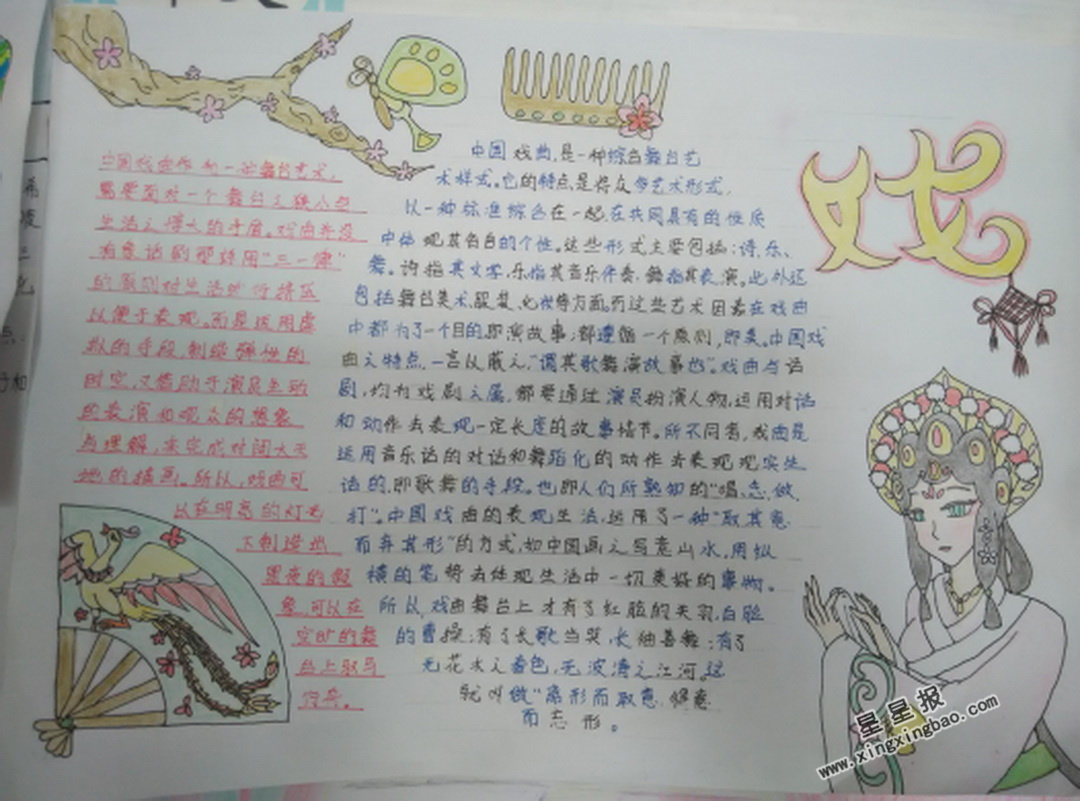 戏
中国戏曲作为一种舞台艺术,
需要面对一个舞台之狭小与
生活之博大的矛盾。戏曲并没
有象话剧那样用“三一律”
的原则对生活进行挤压
以便于表现。而是运用虚
拟的手段,制造弹性的
时空,又借助于演员生动
的表演和观众的想象
与理解,来完成对阔大天
地的描画。所以,戏曲可
以在明亮的灯光
下制造出
黑夜的假
象,可以在
空旷的舞
台上驭马
行舟。
中国戏曲,是一种综合舞台艺
术样式。它的特点是将众多艺术形式,
以一种标准综合在一起,在共同具有的性质
中体现其各自的个性。这些形式主要包括:诗、乐、
舞。诗指其文学,乐指其音乐伴奏,舞指其表演。此外还
包括舞台美术、服装、化妆等方面。而这些艺术因素在戏曲
中都为了一个目的,即演故事;都遵循一个原则,即美。中国戏
曲之特点,一言以蔽之,“谓其歌舞演故事也”。戏曲与话
剧,均为戏剧之属,都要通过演员扮演人物,运用对话
和动作去表现一定长度的故事情节。所不同者,戏曲是
运用音乐话的对话和舞蹈化的动作去表现现实生
活的,即歌舞的手段。也即人们所熟知的“唱、念、做、
打”。中国戏曲的表现生活,运用了一种“取其意
而弃其形”的方式,如中国画之写意山水,用纵
横的笔势去体现生活中一切美好的事物。
所以戏曲舞台上才有了红脸的关羽,白脸
的曹操;有了长歌当哭,长袖善舞;有了
无花木之春色,无波涛之江河,这
就叫做“离形而取意,得意
而忘形。
星星报
www.xingxingbao.com